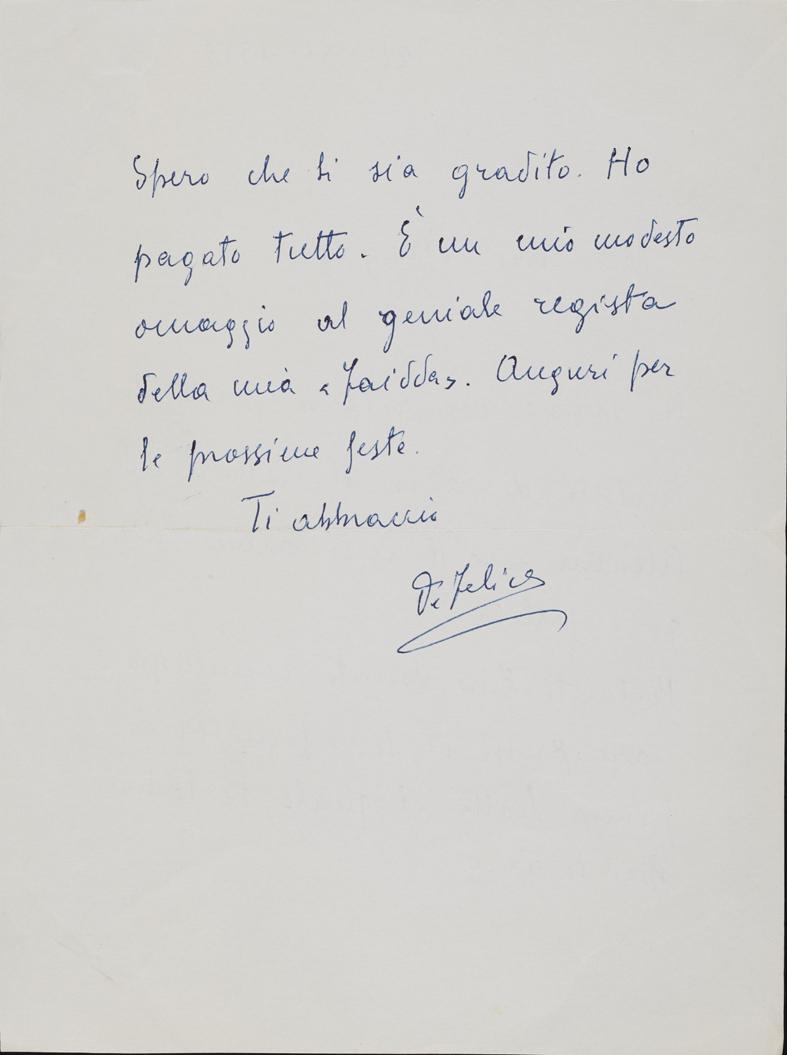 Spero che ti sia gradito. Ho
pagato tutto. È un mio modesto
omaggio al geniale regista
della mia « Jaidda». Auguri per
le prossime feste.
Ti abbraccio
De Felice